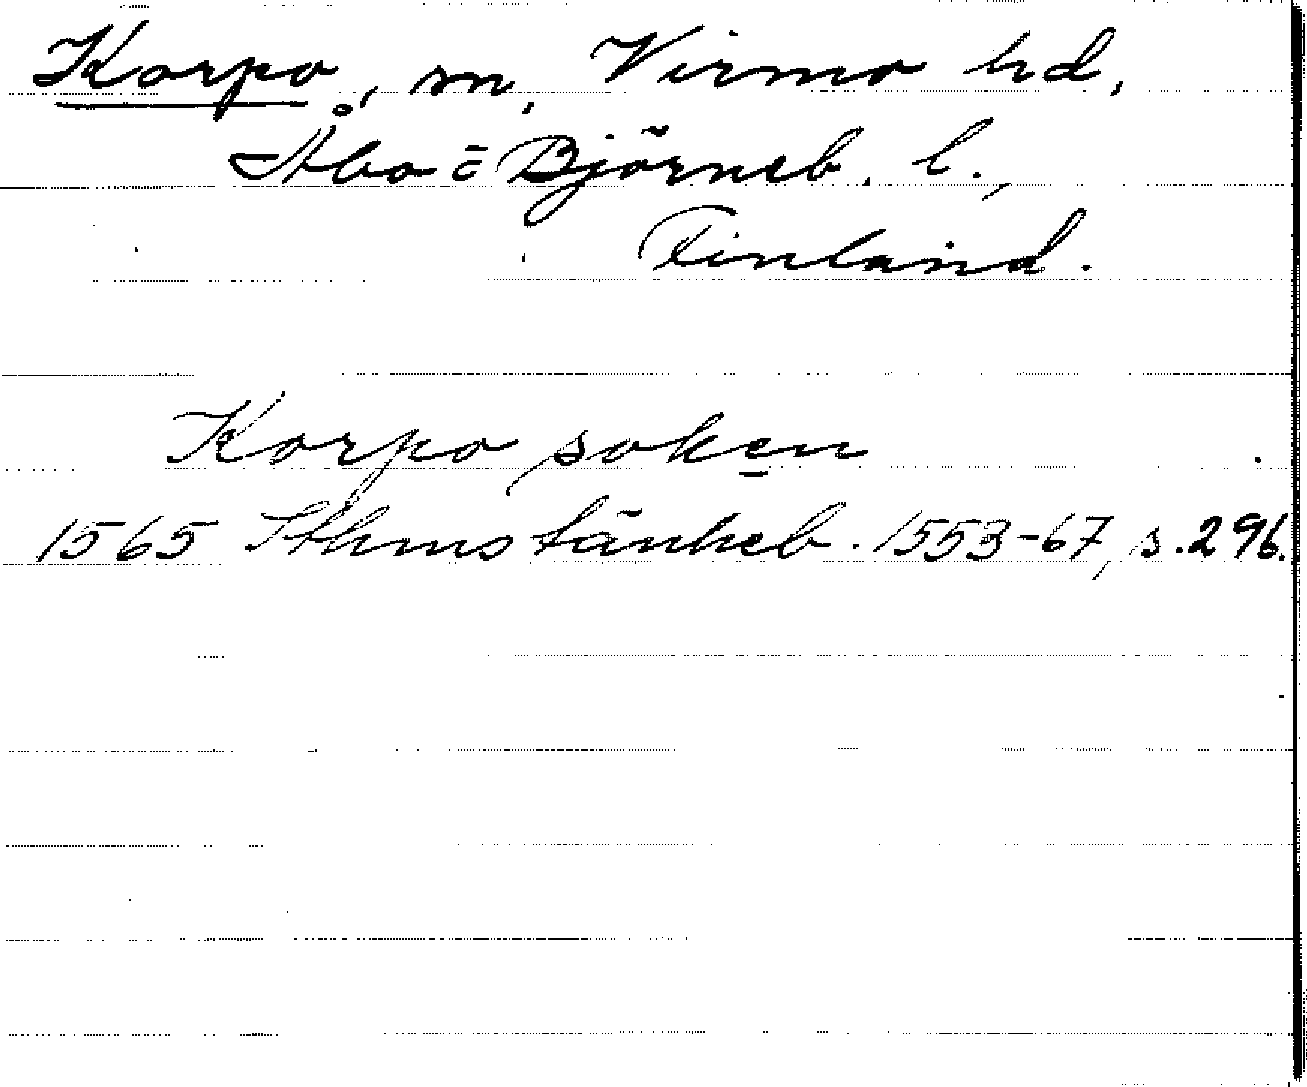 Korpo, sn, Virmo hd,
Åbo = Björneb. l.,
Finland.
Korpo soken
1565 Sthms tänkeb. 1553-67, s. 296.